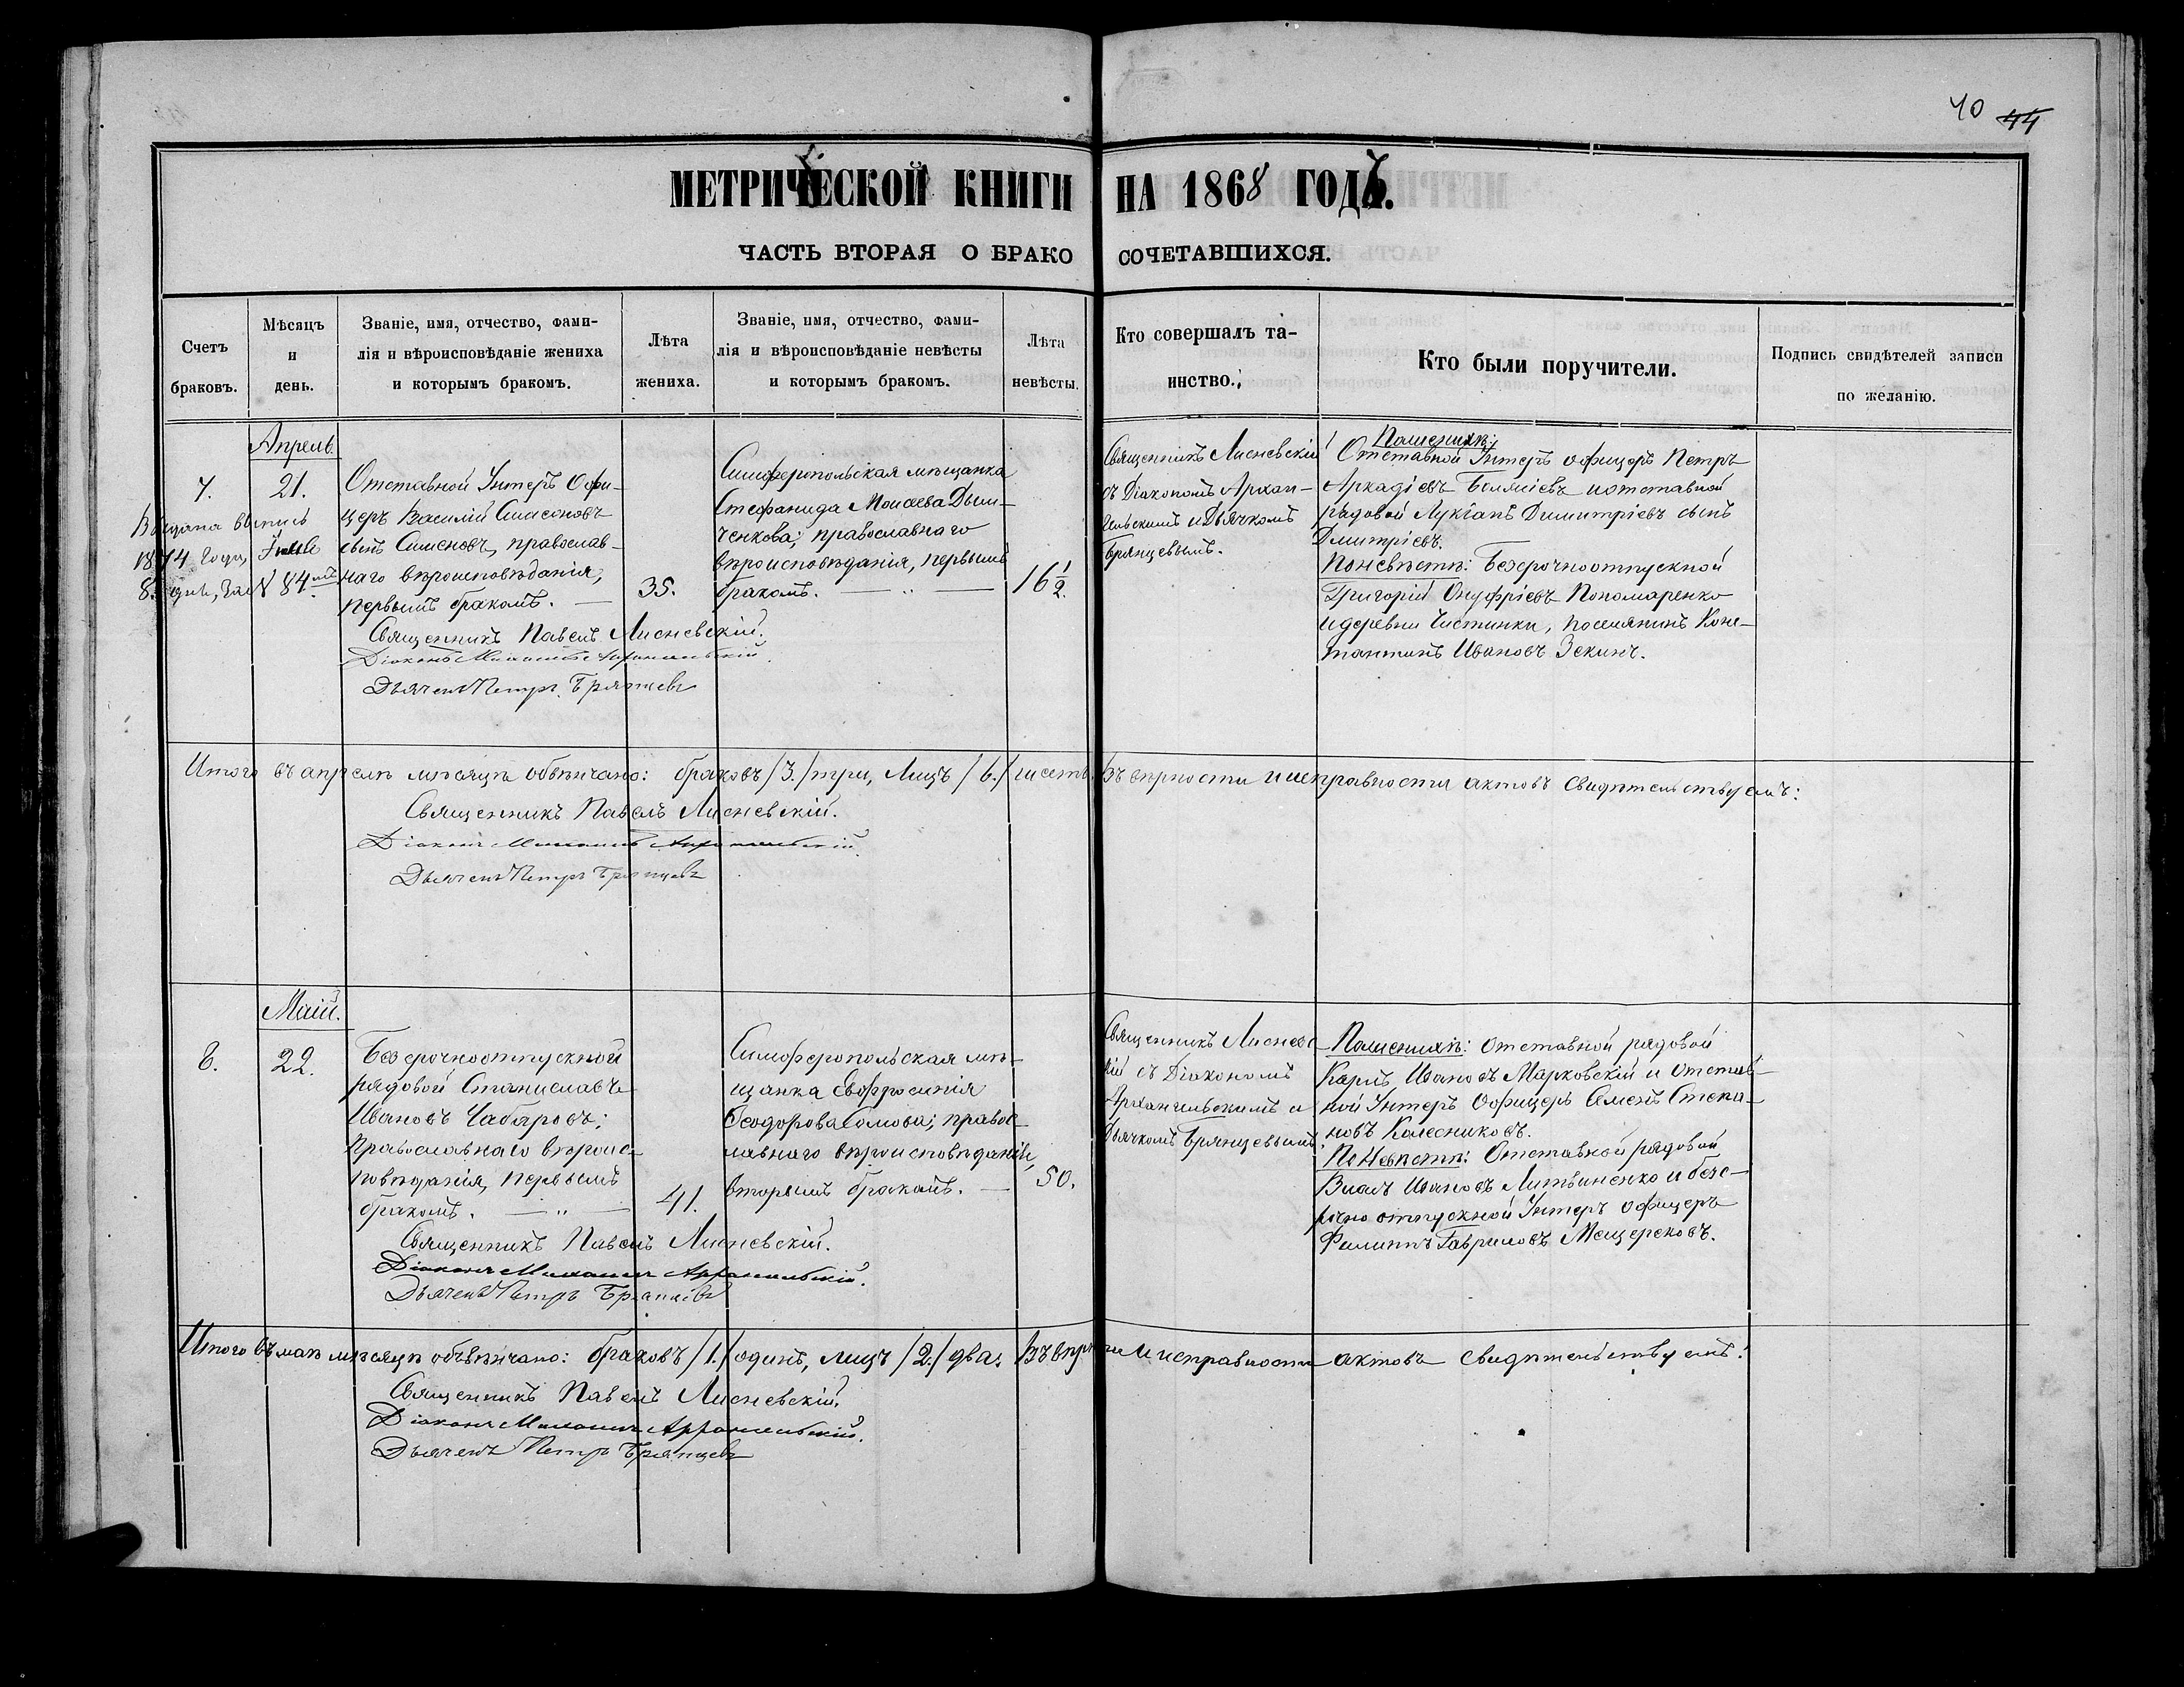 40 44
МЕТРИЧЕСКОЙ КНИГИ НА 1868 ГОДЪ.
ЧАСТЬ ВТОРАЯ О БРАКОСОЧЕТАВШИХСЯ.
Счетъ браковъ.
Мѣсяцъ и день.
Званіе, имя, отчество, фами-
лія и вѣроисповѣданіе жениха
и которымъ бракомъ.
Лѣта
жениха.
Званіе, имя, отчество, фами-
лія и вѣроисповѣданіе невѣсты
и которымъ бракомъ.
Лѣта
невѣсты.
Кто совершалъ та-
инство.
Кто были поручители.
Подпись свидѣтелей записи
по желанію.
Апрель.
7.
21.
Выдана выпись
1874 года, Іюля
8 дня, за № 84мъ
Отставной Унтеръ Офи-
церъ Василій Симеоновъ
сынъ Сименовъ, православ-
наго вѣроисповѣданія,
первымъ бракомъ. —
35.
Симферопольская мѣщанка
Стефанида Моисеева Дьям-
ченкова; православнаго
вѣроисповѣданія, первымъ
бракомъ. — „ —
16 1/2.
Священникъ Лисневскій
съ Діакономъ Архан-
гельскимъ и Дьячкомъ
Брянцевымъ.
По женихѣ:
Отставной Унтеръ Офицеръ Петръ
Аркадіевъ и отставной
рядовой Лукіанъ Димитріевъ сынъ
Дмитріевъ.
По невѣстѣ: Безсрочноотпускной
Григорій Онуфріевъ Пономаренко
и деревни Чистинки, поселянинъ Конс-
тантинъ Ивановъ Зекинъ.
Священникъ Павелъ Лисневскій.
Діаконъ Михаилъ Архангельскій.
Дьячекъ Петръ Брянцевъ
Итого въ апрелѣ мѣсяцѣ обвѣнчано: браковъ /3./ три, лицъ /6./ шесть. Въ вѣрности и исправности актовъ свидѣтельствуемъ:
Священникъ Павелъ Лисневскій.
Діаконъ Михаилъ Архангельскій.
Дьячекъ Петръ Брянцевъ
Маій.
8.
22.
Безсрочноотпускной
рядовой Станиславъ
Ивановъ Чабаровъ;
Православнаго вѣроис-
повѣданія, первымъ
бракомъ. — „ —
41.
Симферопольская мѣ-
щанка Евфросинія
Ѳеодорова Сомова; правос-
лавнаго вѣроисповѣданія,
вторымъ бракомъ. —
50.
Священникъ Лисневс-
кій съ Діакономъ
Архангельскимъ и
Дьячкомъ Брянцевымъ.
По женихѣ: Отставной рядовой
Карпъ Ивановъ Марковскій и Отстав-
ной Унтеръ Офицеръ Семенъ Степа-
новъ Колесниковъ.
По Невѣстѣ: Отставной рядовой
Власъ Ивановъ Литвиненко и безс-
рочно отпускной Унтеръ Офицеръ
Филиппъ Гавриловъ Мещерековъ.
Священникъ Павелъ Лисневскій.
Діаконъ Михаилъ Архангельскій.
Дьячекъ Петръ Брянцевъ
Итого въ маѣ мѣсяцѣ обвѣнчано: браковъ /1./ одинъ, лицъ /2./ два. Въ вѣрности и исправности актовъ свидѣтельствуемъ:
Священникъ Павелъ Лисневскій.
Діаконъ Михаилъ Архангельскій.
Дьячекъ Петръ Брянцевъ